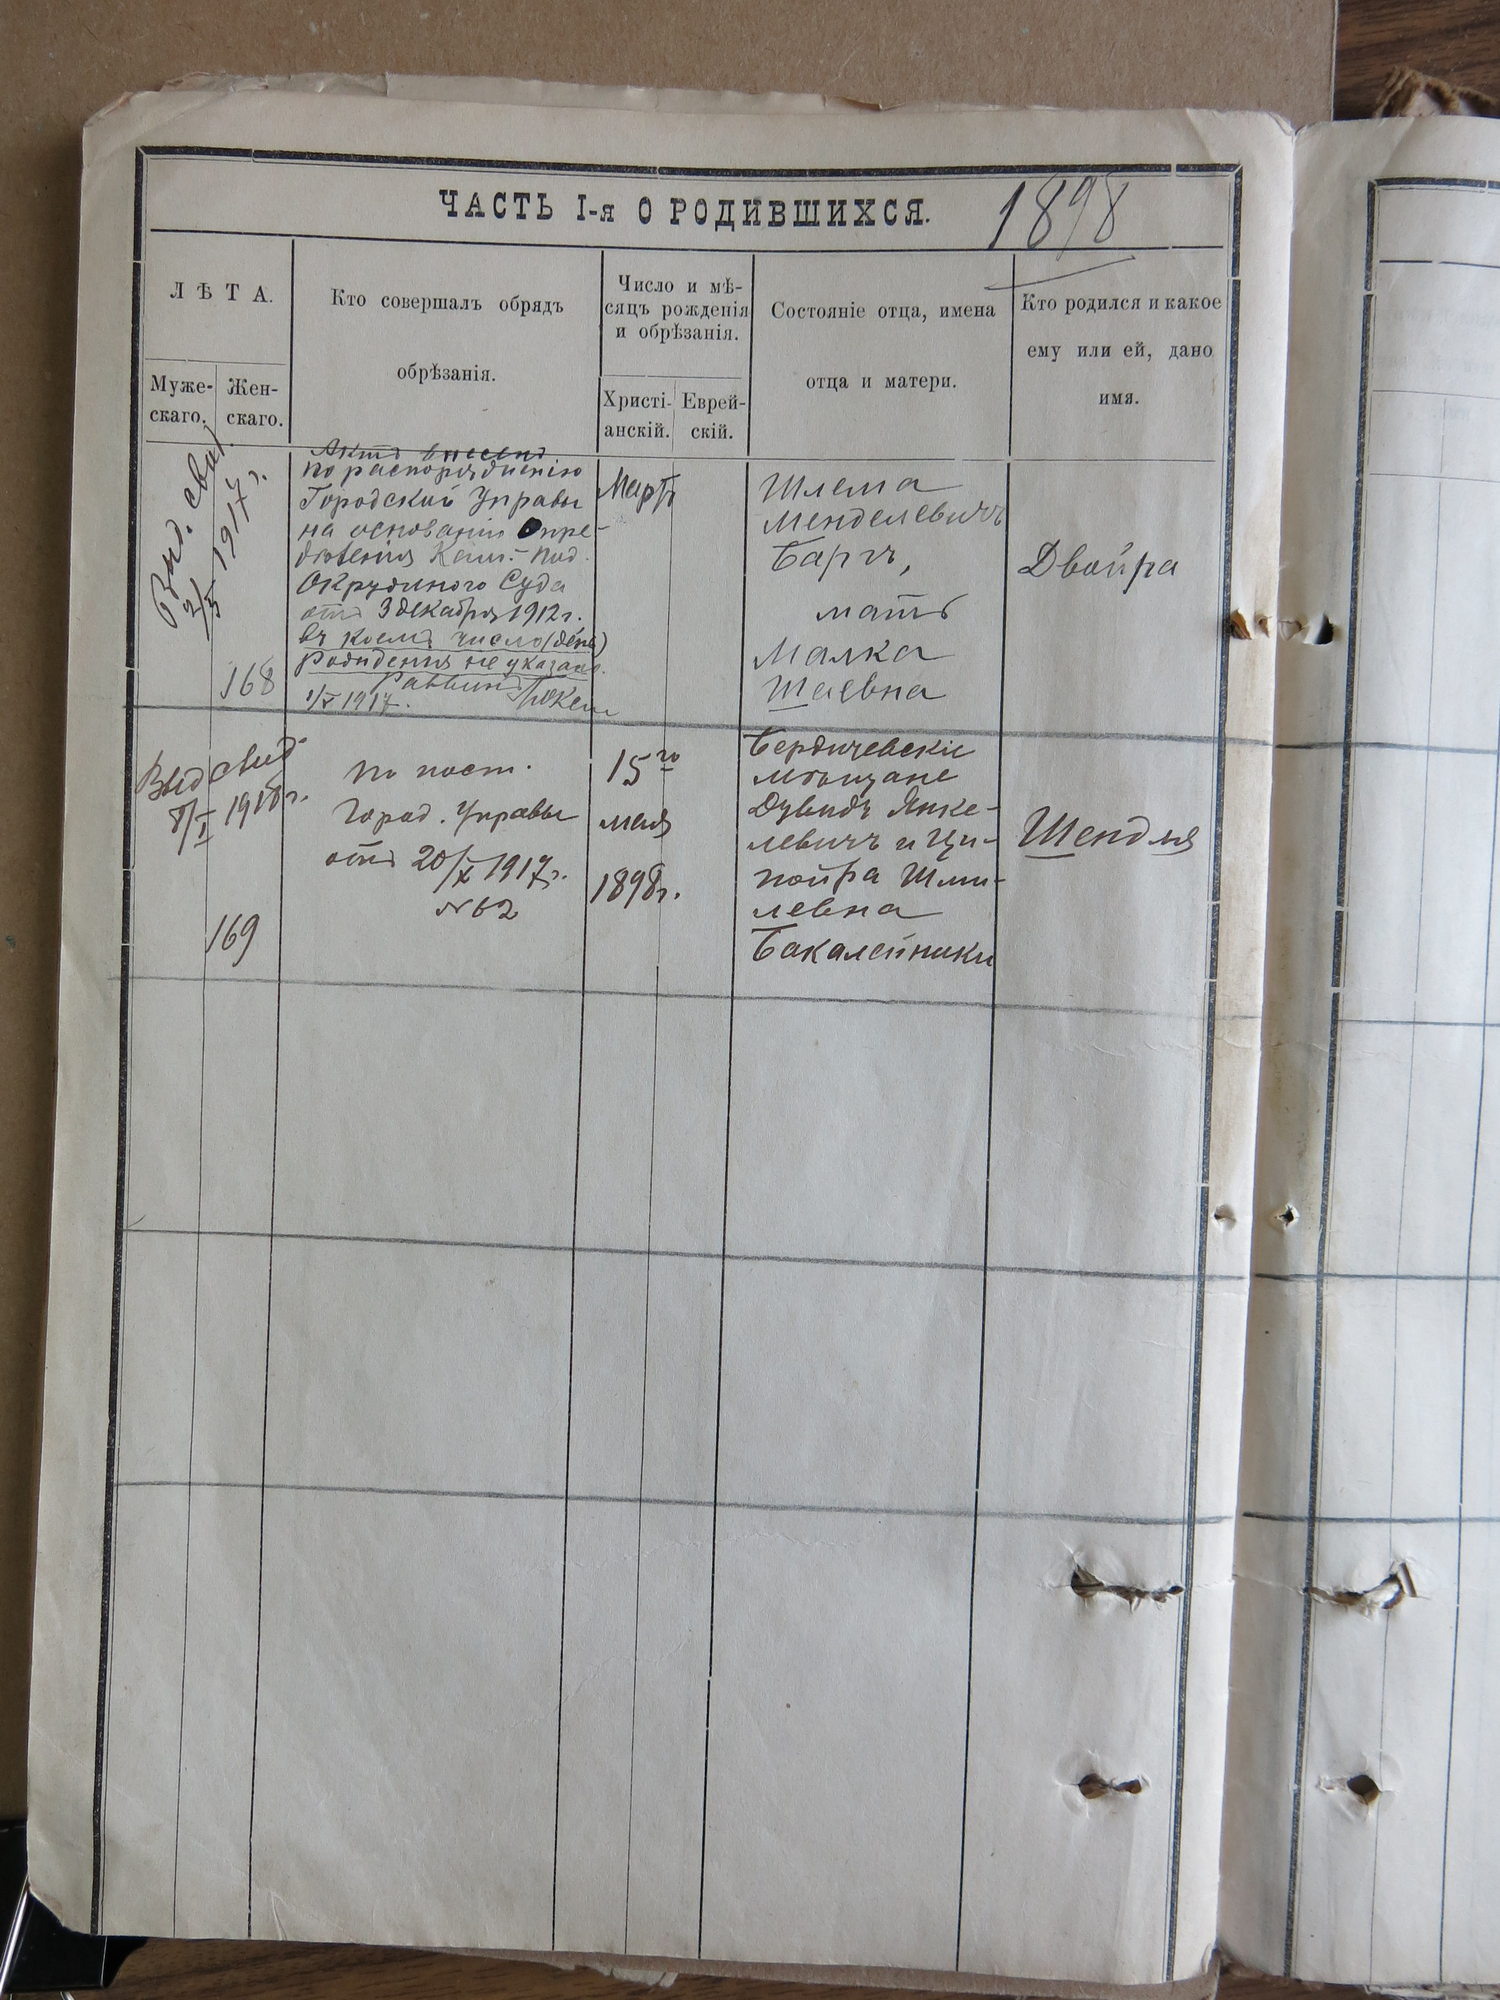 ЧАСТЬ I-я О РОДИВШИХСЯ. 1898
ЛѢТА.
Муже-
скаго.
Жен-
скаго.
Кто совершалъ обрядъ
обрѣзанія.
Число и мѣ-
сяцъ рожденія
и обрѣзанія.
Христі-
анскій.
Еврей-
скій.
Состояніе отца, имена
отца и матери.
Кто родился и какое
ему или ей, дано
имя.
Выд. свид.
2/X 1917 г.
168
Актъ внесенъ
по распоряженію
Городской Управы
на основаніи Опре-
дѣленія Кам.-Под.
Окружного Суда
отъ 3 декабря 1912 г.
въ коемъ число (день)
рожденія не указано.
Раввинъ
1/X 1917.
Мартъ
Шлема
Менделевичъ
Баргъ,
мать
Малка
Шаевна
Двойра
Выд свид
8/I 1918 г.
169
по пост.
Город. Управы
отъ 20/X 1917 г.
№ 62
15го
мая
1898 г.
Бердичевскіе
мѣщане
Дувидъ Янке-
левичъ и Ци-
пойра Шми-
левна
Бакалейники
Шендля